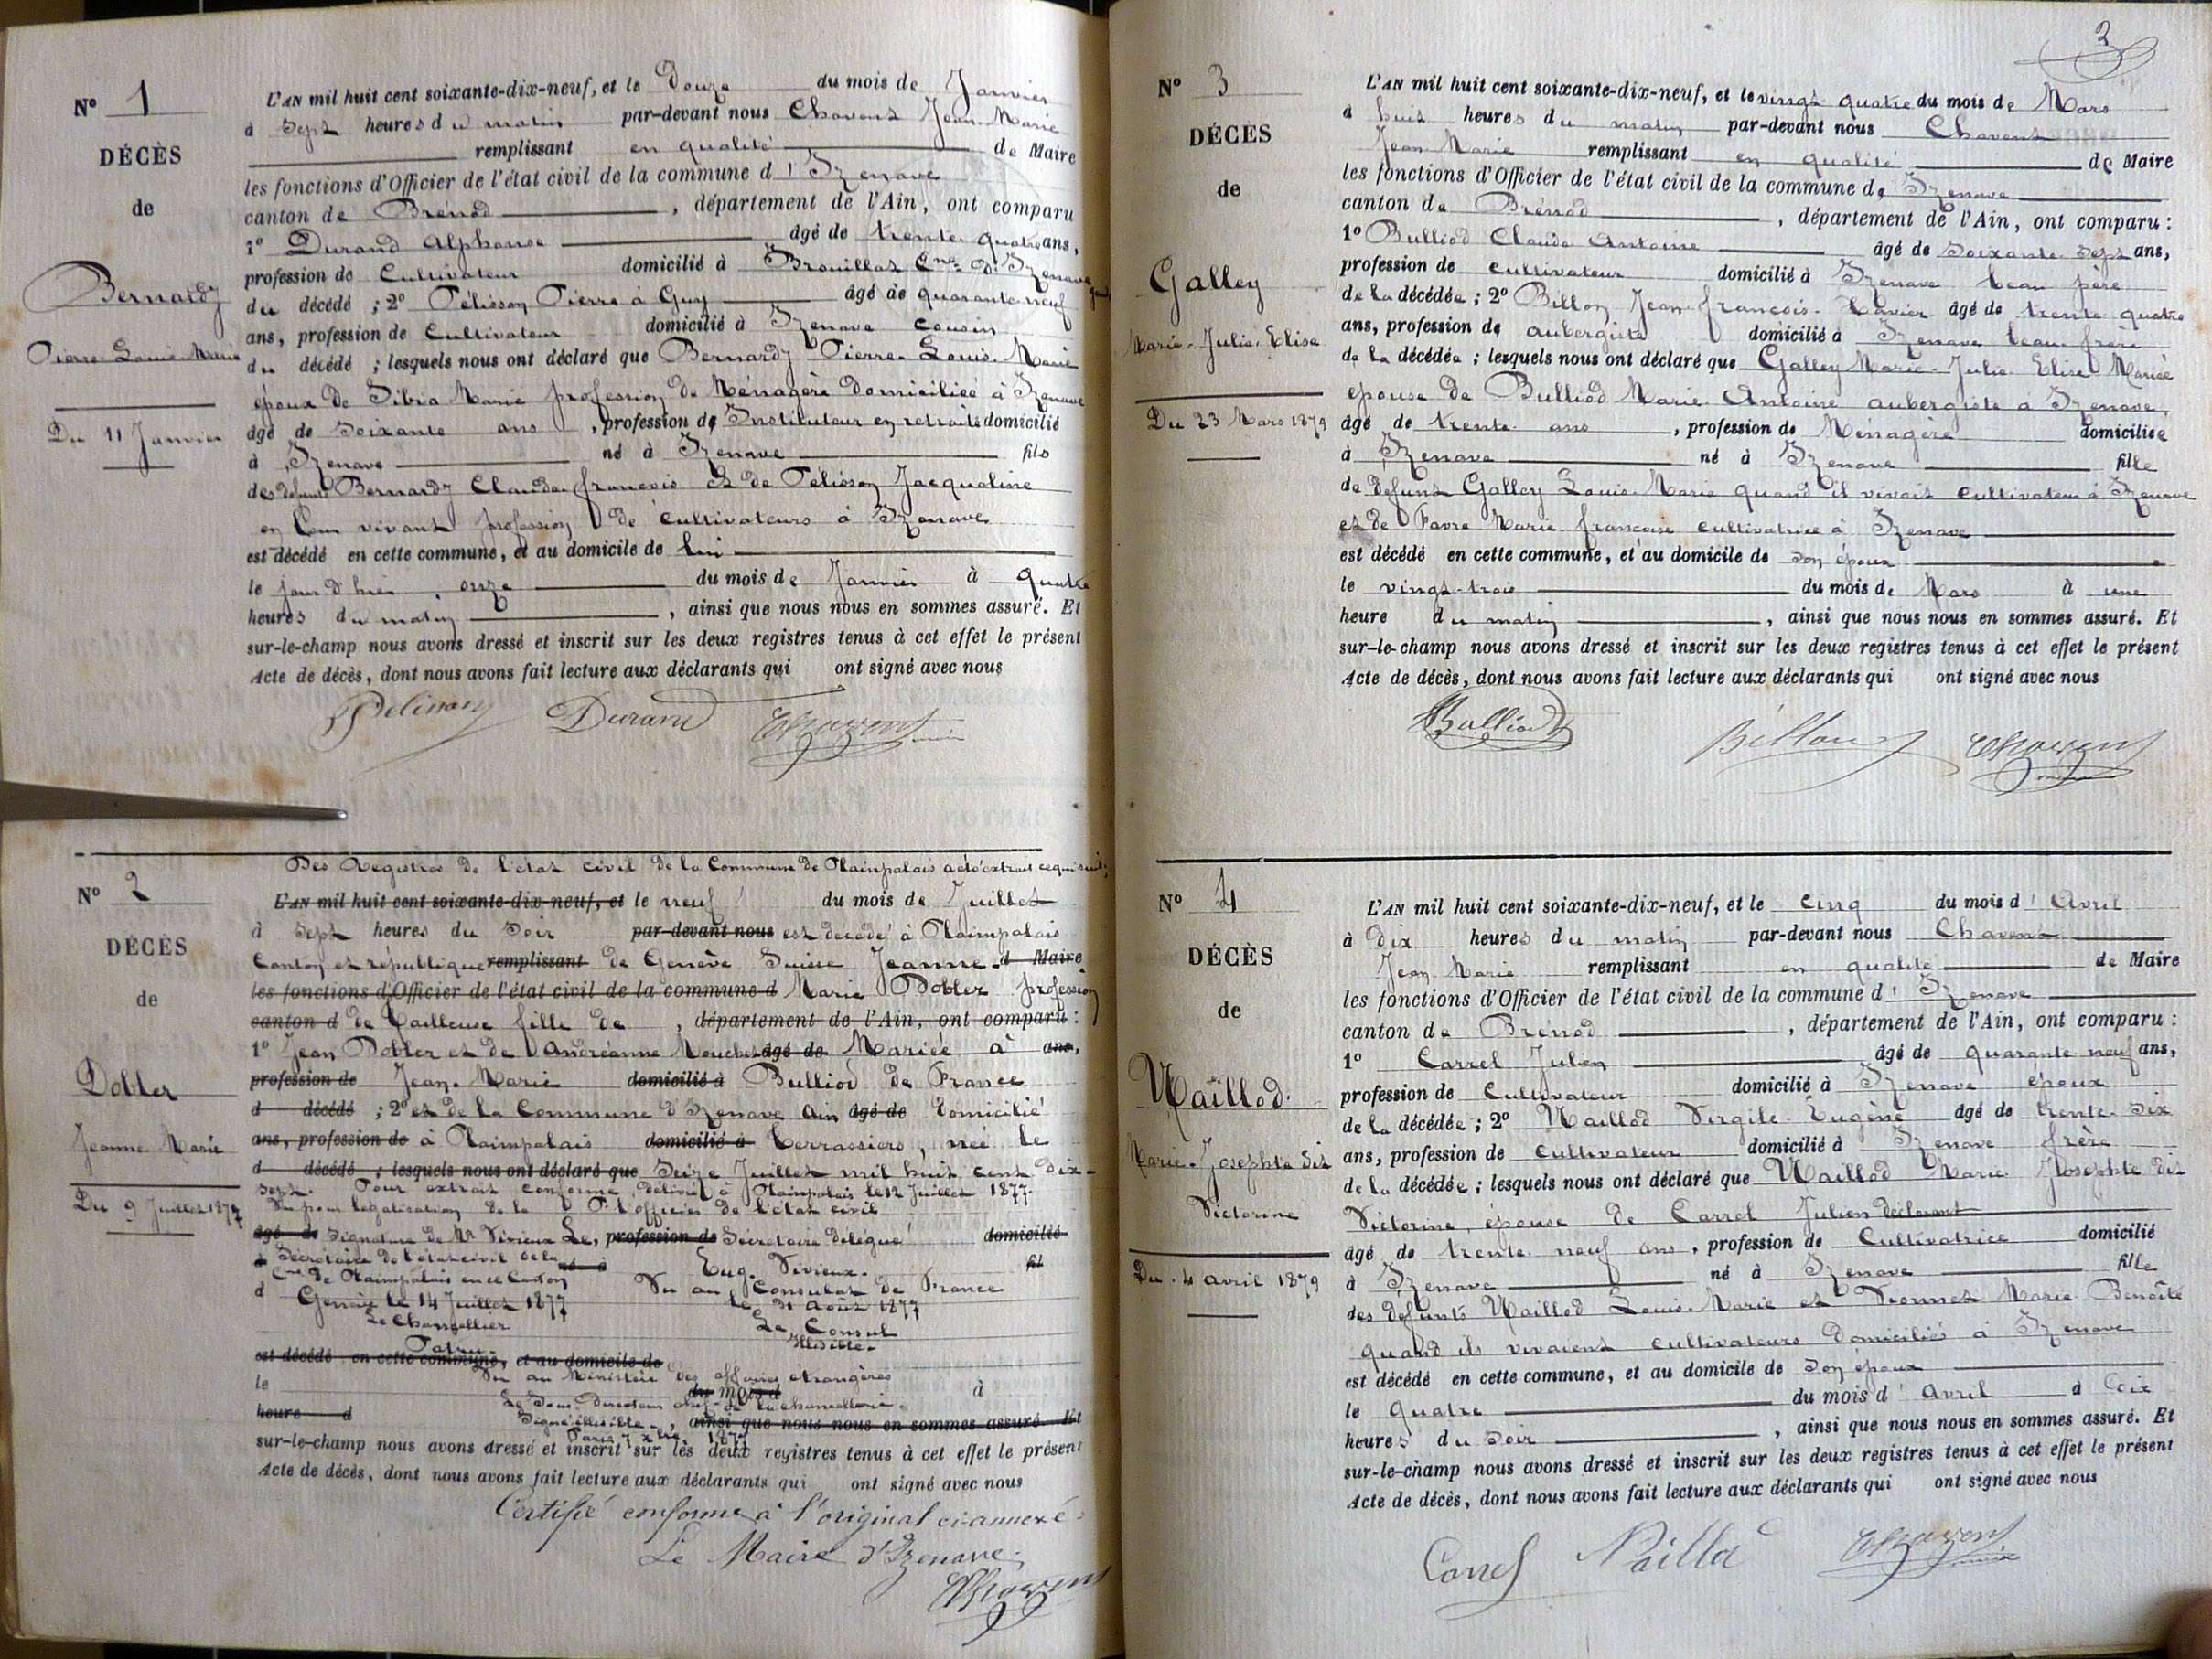 N° 1
DÉCÈS
de
Bernardy
Pierre Louis Marie
Du 11 Janvier
L'AN mil huit cent soixante-dix-neuf, et le Douze du mois de Janvier
à sept heures du matin par-devant nous Chavent Jean Marie
remplissant en qualité de Maire
les fonctions d'Officier de l'état civil de la commune d'Izenave
canton de Brénod, département de l'Ain, ont comparu
1° Durand Alphonse âgé de trente quatre ans,
profession de Cultivateur domicilié à Brouillat Cne d'Izenave
du décédé ; 2° Pélisson Pierre à Guy âgé de quarante neuf
ans, profession de Cultivateur domicilié à Izenave cousin
du décédé ; lesquels nous ont déclaré que Bernardy Pierre Louis Marie
époux de Tibia Marie profession de Ménagère domiciliée à Izenave
âgé de soixante ans, profession de Instituteur en retraite domicilié
à Izenave né à Izenave fils
des défunts Bernardy Claude françois et de Pélisson Jacqueline
en leur vivant profession de cultivateurs à Izenave
est décédé en cette commune, et au domicile de lui
le jour d'hier, onze du mois de Janvier à quatre
heures du matin, ainsi que nous nous en sommes assuré. Et
sur-le-champ nous avons dressé et inscrit sur les deux registres tenus à cet effet le présent
Acte de décès, dont nous avons fait lecture aux déclarants qui ont signé avec nous
Pelisson Durand Chavent
N° 2
DÉCÈS
de
Dobler
Jeanne Marie
Du 9 Juillet 1877
Des Registres de l'état civil de la Commune de Plainpalais a été extrait ce qui suit;
L'AN mil huit cent soixante-dix-neuf, et le neuf du mois de Juillet
à sept heures du soir par-devant nous est décédé à Plainpalais
Canton et république remplissant de Genève Suisse Jeanne d Maire
les fonctions d'Officier de l'état civil de la commune d Marie Dobler profession
canton d de Tailleuse fille de, département de l'Ain, ont comparu :
1° Jean Dobler et de Andréanne Mouchet âgé de Mariée à ans,
profession de Jean-Marie domicilié à Bulliod de France
d décédé ; 2° et de la Commune d'Izenave Ain âgé de domicilié
ans, profession de à Plainpalais domicilié à Terrassiers, née le
d décédé ; lesquels nous ont déclaré que Seize Juillet mil huit cent dix-
sept. Pour extrait conforme, délivré à Plainpalais le 12 Juillet 1877.
Vu pour légalisation de la P. l'officier de l'état civil
âgé de signature de Mr Vivieux Le, profession de Secrétaire délégué domicilié
à Secrétaire de l'état civil de la né à Eug. Vivieux. fil
Cne de Plainpalais en ce Canton Vu au Consulat de France
d Genève le 14 Juillet 1877 le 31 Août 1877
Le Chancellier Le Consul
Illisible.
est décédé en cette commune, et au domicile de
Vu au Ministère des affaires étrangères
le du mois d à
Le Sous Directeur chef de la chancellerie.
heure d Signé illisible., ainsi que nous nous en sommes assuré. Et
Paris 7 xbre 1877
sur-le-champ nous avons dressé et inscrit sur les deux registres tenus à cet effet le présent
Acte de décès, dont nous avons fait lecture aux déclarants qui ont signé avec nous
Certifié conforme à l'original ci-annexé.
Le Maire d'Izenave,
Chavent
2
N° 3
DÉCÈS
de
Galley
Marie-Julie-Elise
Du 23 Mars 1879
L'AN mil huit cent soixante-dix-neuf, et le vingt quatre du mois de Mars
à huit heures du matin par-devant nous Chavent
Jean Marie remplissant en qualité de Maire
les fonctions d'Officier de l'état civil de la commune de Izenave
canton de Brénod, département de l'Ain, ont comparu :
1° Bulliod Claude Antoine âgé de soixante sept ans,
profession de cultivateur domicilié à Izenave beau père
de la décédée ; 2° Billon Jean-françois-Xavier âgé de trente quatre
ans, profession de aubergiste domicilié à Izenave beau-frère
de la décédée ; lesquels nous ont déclaré que Galley Marie-Julie Elise Mariée
épouse de Bulliod Marie Antoine aubergiste à Izenave,
âgé de trente ans, profession de Ménagère domiciliée
à Izenave né à Izenave fille
de defunt Galley Louis-Marie quand il vivait cultivateur à Izenave
et de Favre Marie françoise cultivatrice à Izenave
est décédé en cette commune, et au domicile de son époux
le vingt-trois du mois de Mars à une
heure du matin, ainsi que nous nous en sommes assuré. Et
sur-le-champ nous avons dressé et inscrit sur les deux registres tenus à cet effet le présent
Acte de décès, dont nous avons fait lecture aux déclarants qui ont signé avec nous
Bulliod Billon Chavent
N° 4
DÉCÈS
de
Maillod.
Marie-Josephte dit
Victorine
Du 4 avril 1879
L'AN mil huit cent soixante-dix-neuf, et le cinq du mois d'Avril
à Dix heures du matin par-devant nous Chavent
Jean Marie remplissant en qualité de Maire
les fonctions d'Officier de l'état civil de la commune d'Izenave
canton de Brénod, département de l'Ain, ont comparu :
1° Carrel Julien âgé de quarante neuf ans,
profession de Cultivateur domicilié à Izenave époux
de la décédée ; 2° Maillod Virgile Eugène âgé de trente six
ans, profession de cultivateur domicilié à Izenave frère
de la décédée ; lesquels nous ont déclaré que Maillod Marie Josephte dit
Victorine, épouse de Carrel Julien déclarant
âgé de trente neuf ans, profession de Cultivatrice domicilié
à Izenave né à Izenave fille
des defunts Maillod Louis-Marie et Vionnet Marie Benoîte
quand ils vivaient cultivateurs domiciliés à Izenave
est décédé en cette commune, et au domicile de son époux
le Quatre du mois d'avril à Dix
heures du soir, ainsi que nous nous en sommes assuré. Et
sur-le-champ nous avons dressé et inscrit sur les deux registres tenus à cet effet le présent
Acte de décès, dont nous avons fait lecture aux déclarants qui ont signé avec nous
Carrel Maillod Chavent